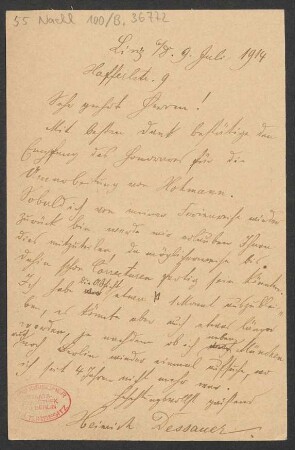 55 Nachl 100/B, 36772
Linz a/D. 9. Juli 1914
Hafferlstr. 9.
Sehr geehrte Herren!
Mit bestem Dank bestätige den
Empfang des Honorares für die
Umarbeitung von Hofmann.
Sobald ich von meiner Ferienreise wieder
zurück bin werde mir erlauben Ihnen
dies mitzuteilen da möglicherweise bis
dahin schon Correcturen fertig sein könnten.
Ich habe die Absicht etwa
es könnte aber auch etwas länger
werden, je nachdem ob ich München
Berlin wieder einmal aufsuche, wo
ich seit 4 Jahren nicht mehr war.
Hochachtungsvollst
Heinrich Dessauer.